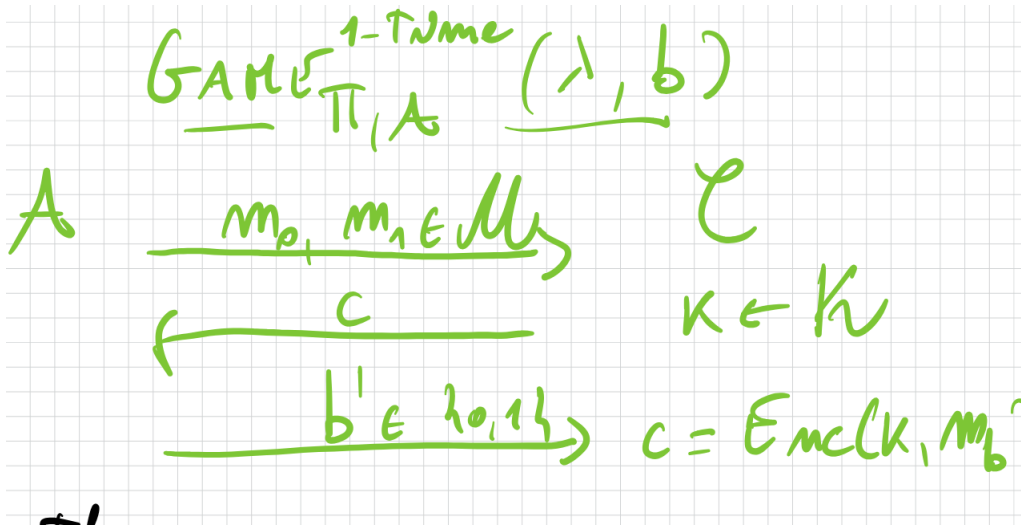 GAME^{1-TIME}_{Π,A} (λ, b)
A m₀, m₁ ∈ M C
c K ← K
b' ∈ {0,1} c = Enc(K, m_b